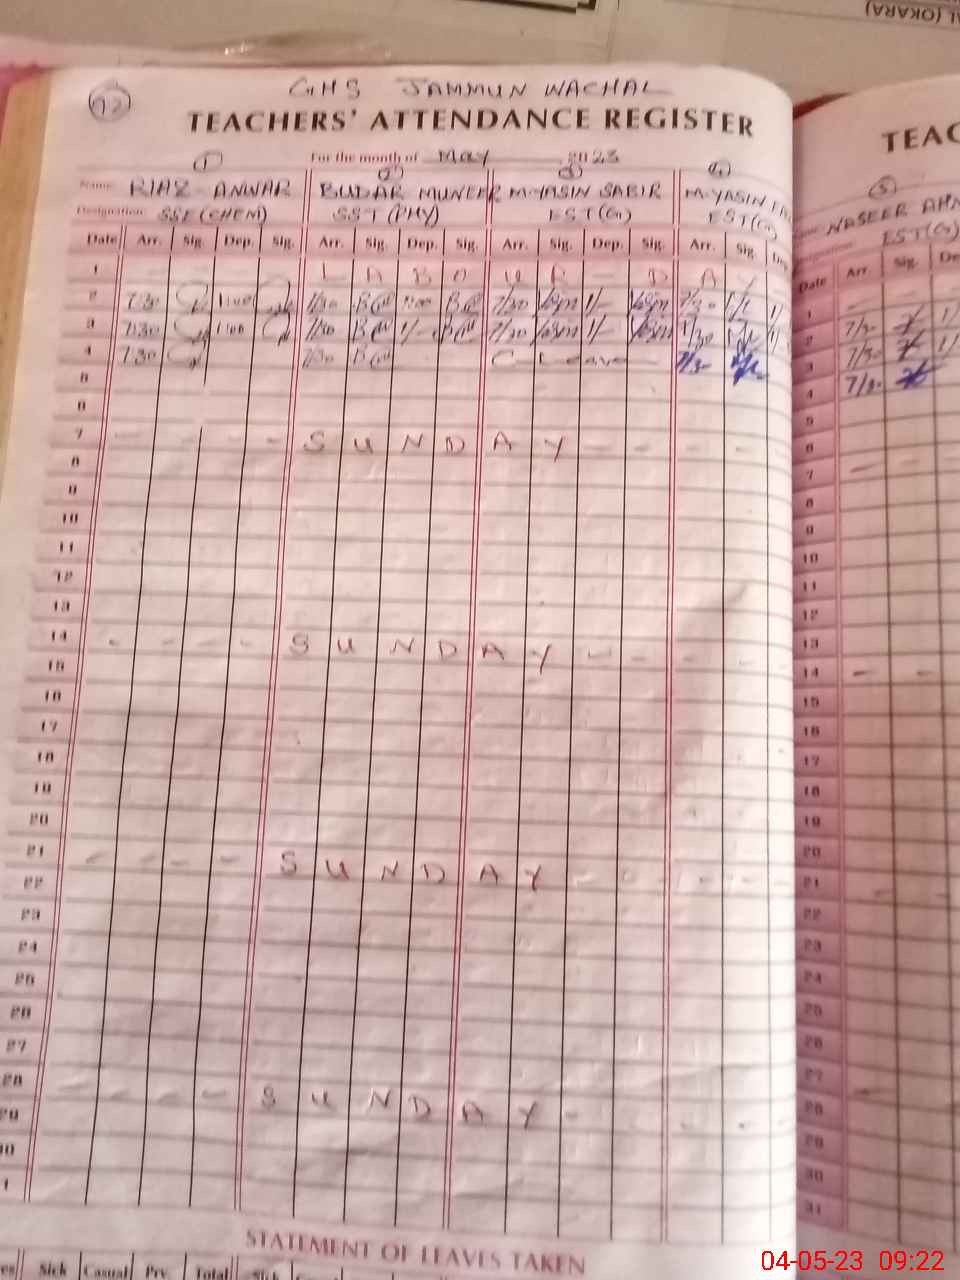 AL (OKARA)
92
GHS JAMMUN WACHAL
TEACHERS' ATTENDANCE REGISTER
For the month of May 2023
1 2 3 4
Name RIAZ ANWAR BUDAR MUNEER M-YASIN SABIR M-YASIN
Designation SSE (CHEM) SST (PHY) EST(G) EST(G)
Date Arr. Sig. Dep. Sig. Arr. Sig. Dep. Sig. Arr. Sig. Dep. Sig. Arr. Sig. De
1 L A B O U R - D A Y
2 7:30 1:00 7/30 7/30 1/- 7/30
3 7:30 1:00 7/30 1/- 7/30 1/- 7/30
4 7:30 7/30 C Leave 7/30
5
6
7 S U N D A Y
8
9
10
11
12
13
14 S U N D A Y
15
16
17
18
19
20
21 S U N D A Y
22
23
24
25
26
27
28 S U N D A Y
29
30
1
STATEMENT OF LEAVES TAKEN
es Sick Casual Prv. Total Sick
TEAC
5
NASEER AHM
EST(G)
Date Arr. Sig. De
1
2 7/30
3 7/30
4 7/30
5
6
7
8
9
10
11
12
13
14
15
16
17
18
19
20
21
22
23
24
25
26
27
28
29
30
31
04-05-23 09:22